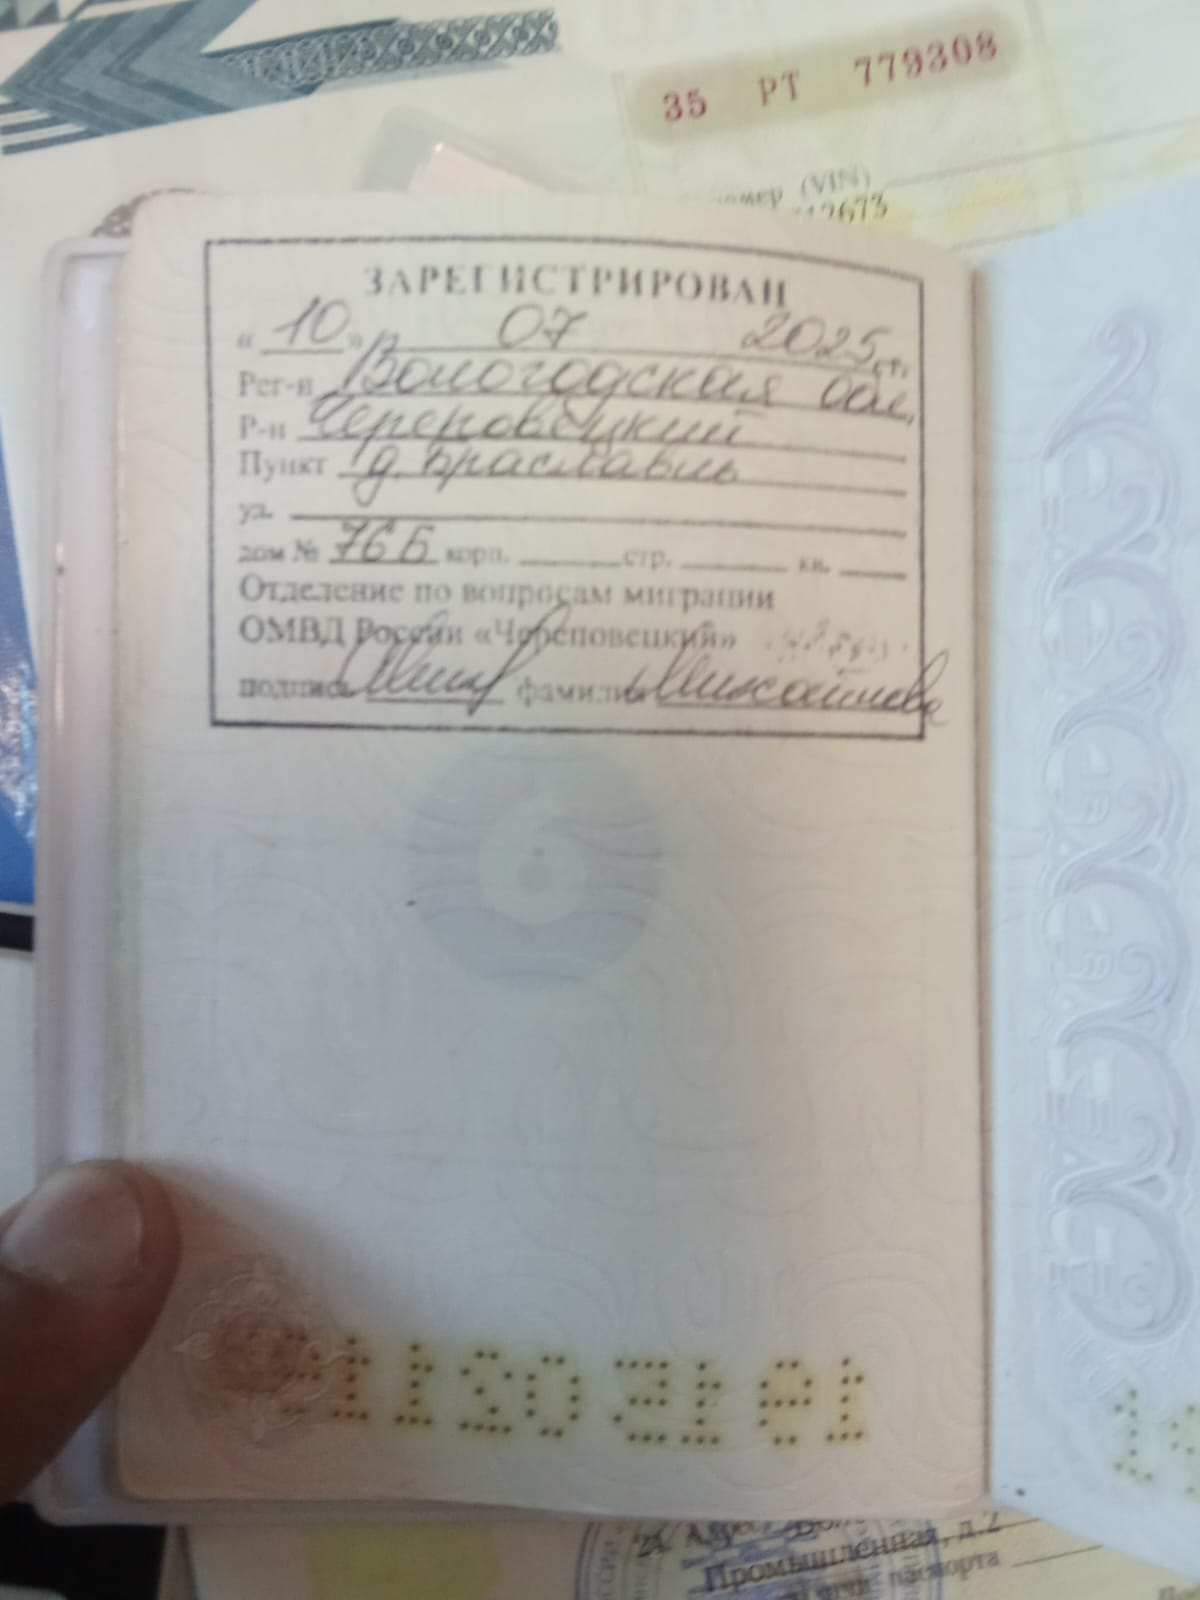 35 РТ 779308
номер (VIN)
12673
ЗАРЕГИСТРИРОВАН
« 10 » 07 2025 г.
Рег-н Вологодская обл.
Р-н Череповецкий
Пункт д. Браславль
ул.
дом № 76 Б корп. стр. кв.
Отделение по вопросам миграции
ОМВД России «Череповецкий»
подпись фамилия Михайлова
24. Адрес
Промышленная, д.2
паспорта